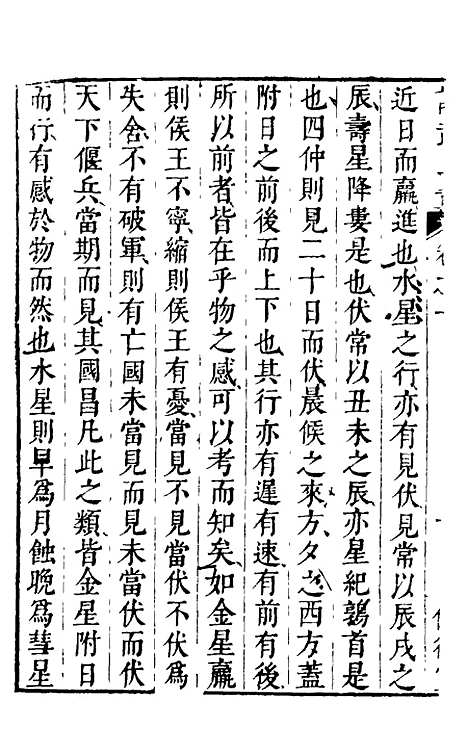 近日而羸進也水星之行亦有見伏見常以辰戌之
辰壽星降婁是也伏常以丑未之辰亦星紀鶉首是
也四仲則見二十日而伏晨候之來方夕之西方蓋
附日之前後而上下也其行亦有遲有速有前有後
所以前者皆在乎物之感可以考而知矣如金星羸
則侯王不寧縮則侯王有憂當見不見當伏不伏爲
失舍不有破軍則有亡國未當見而見未當伏而伏
天下偃兵當期而見其國昌凡此之類皆金星附日
而行有感於物而然也水星則早爲月蝕晚爲彗星